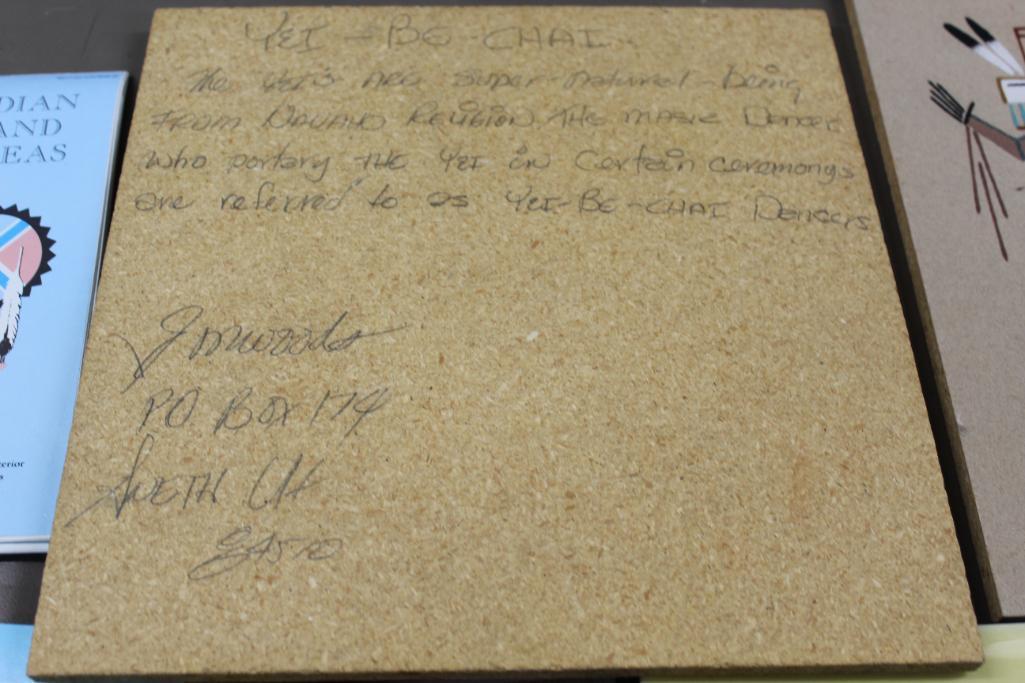 YEI - BE - CHAI
The YEI'S ARE super-natural-being
FROM NAVAHO RELIGION. THE MASK Dancer
who portary THE YEI in Certain ceremonys
are referred to as YEI-BE-CHAI Dancers
PO BOX 174
ANETH UT
84510
DIAN
AND
EAS
terior